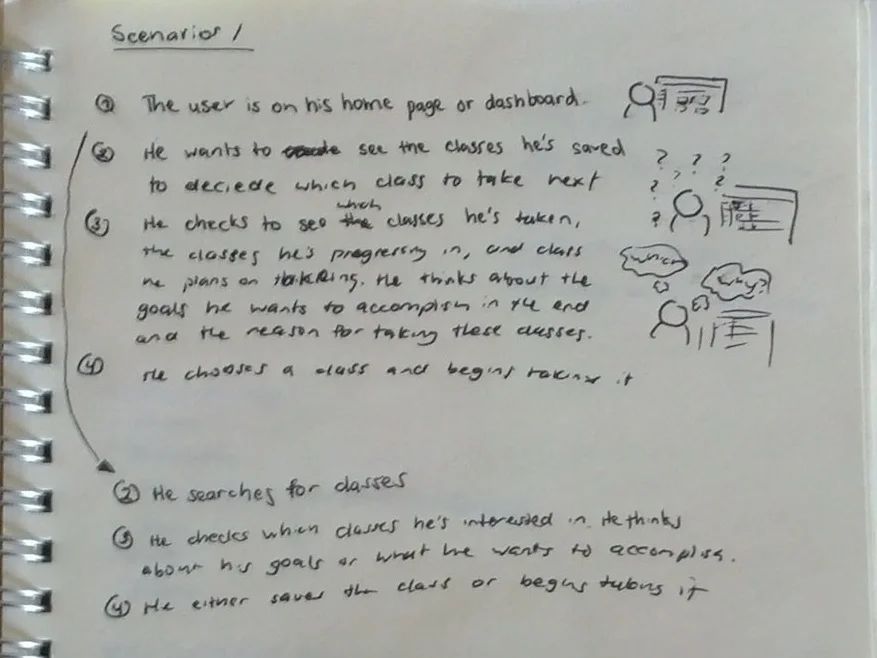 Scenarios 1
① The user is on his home page or dashboard.
② He wants to see the classes he's saved
to deciede which class to take next
? ? ?
? ? ?
?
which
③ He checks to see the classes he's taken,
the classes he's progressing in, and class
he plans on takring. He thinks about the
goals he wants to accomplish in the end
and the reason for taking these classes.
which
why?
④ He chooses a class and begins taking it
② He searches for classes
③ He checks which classes he's interested in. He thinks
about his goals or what he wants to accomplish.
④ He either saves the class or begins taking it